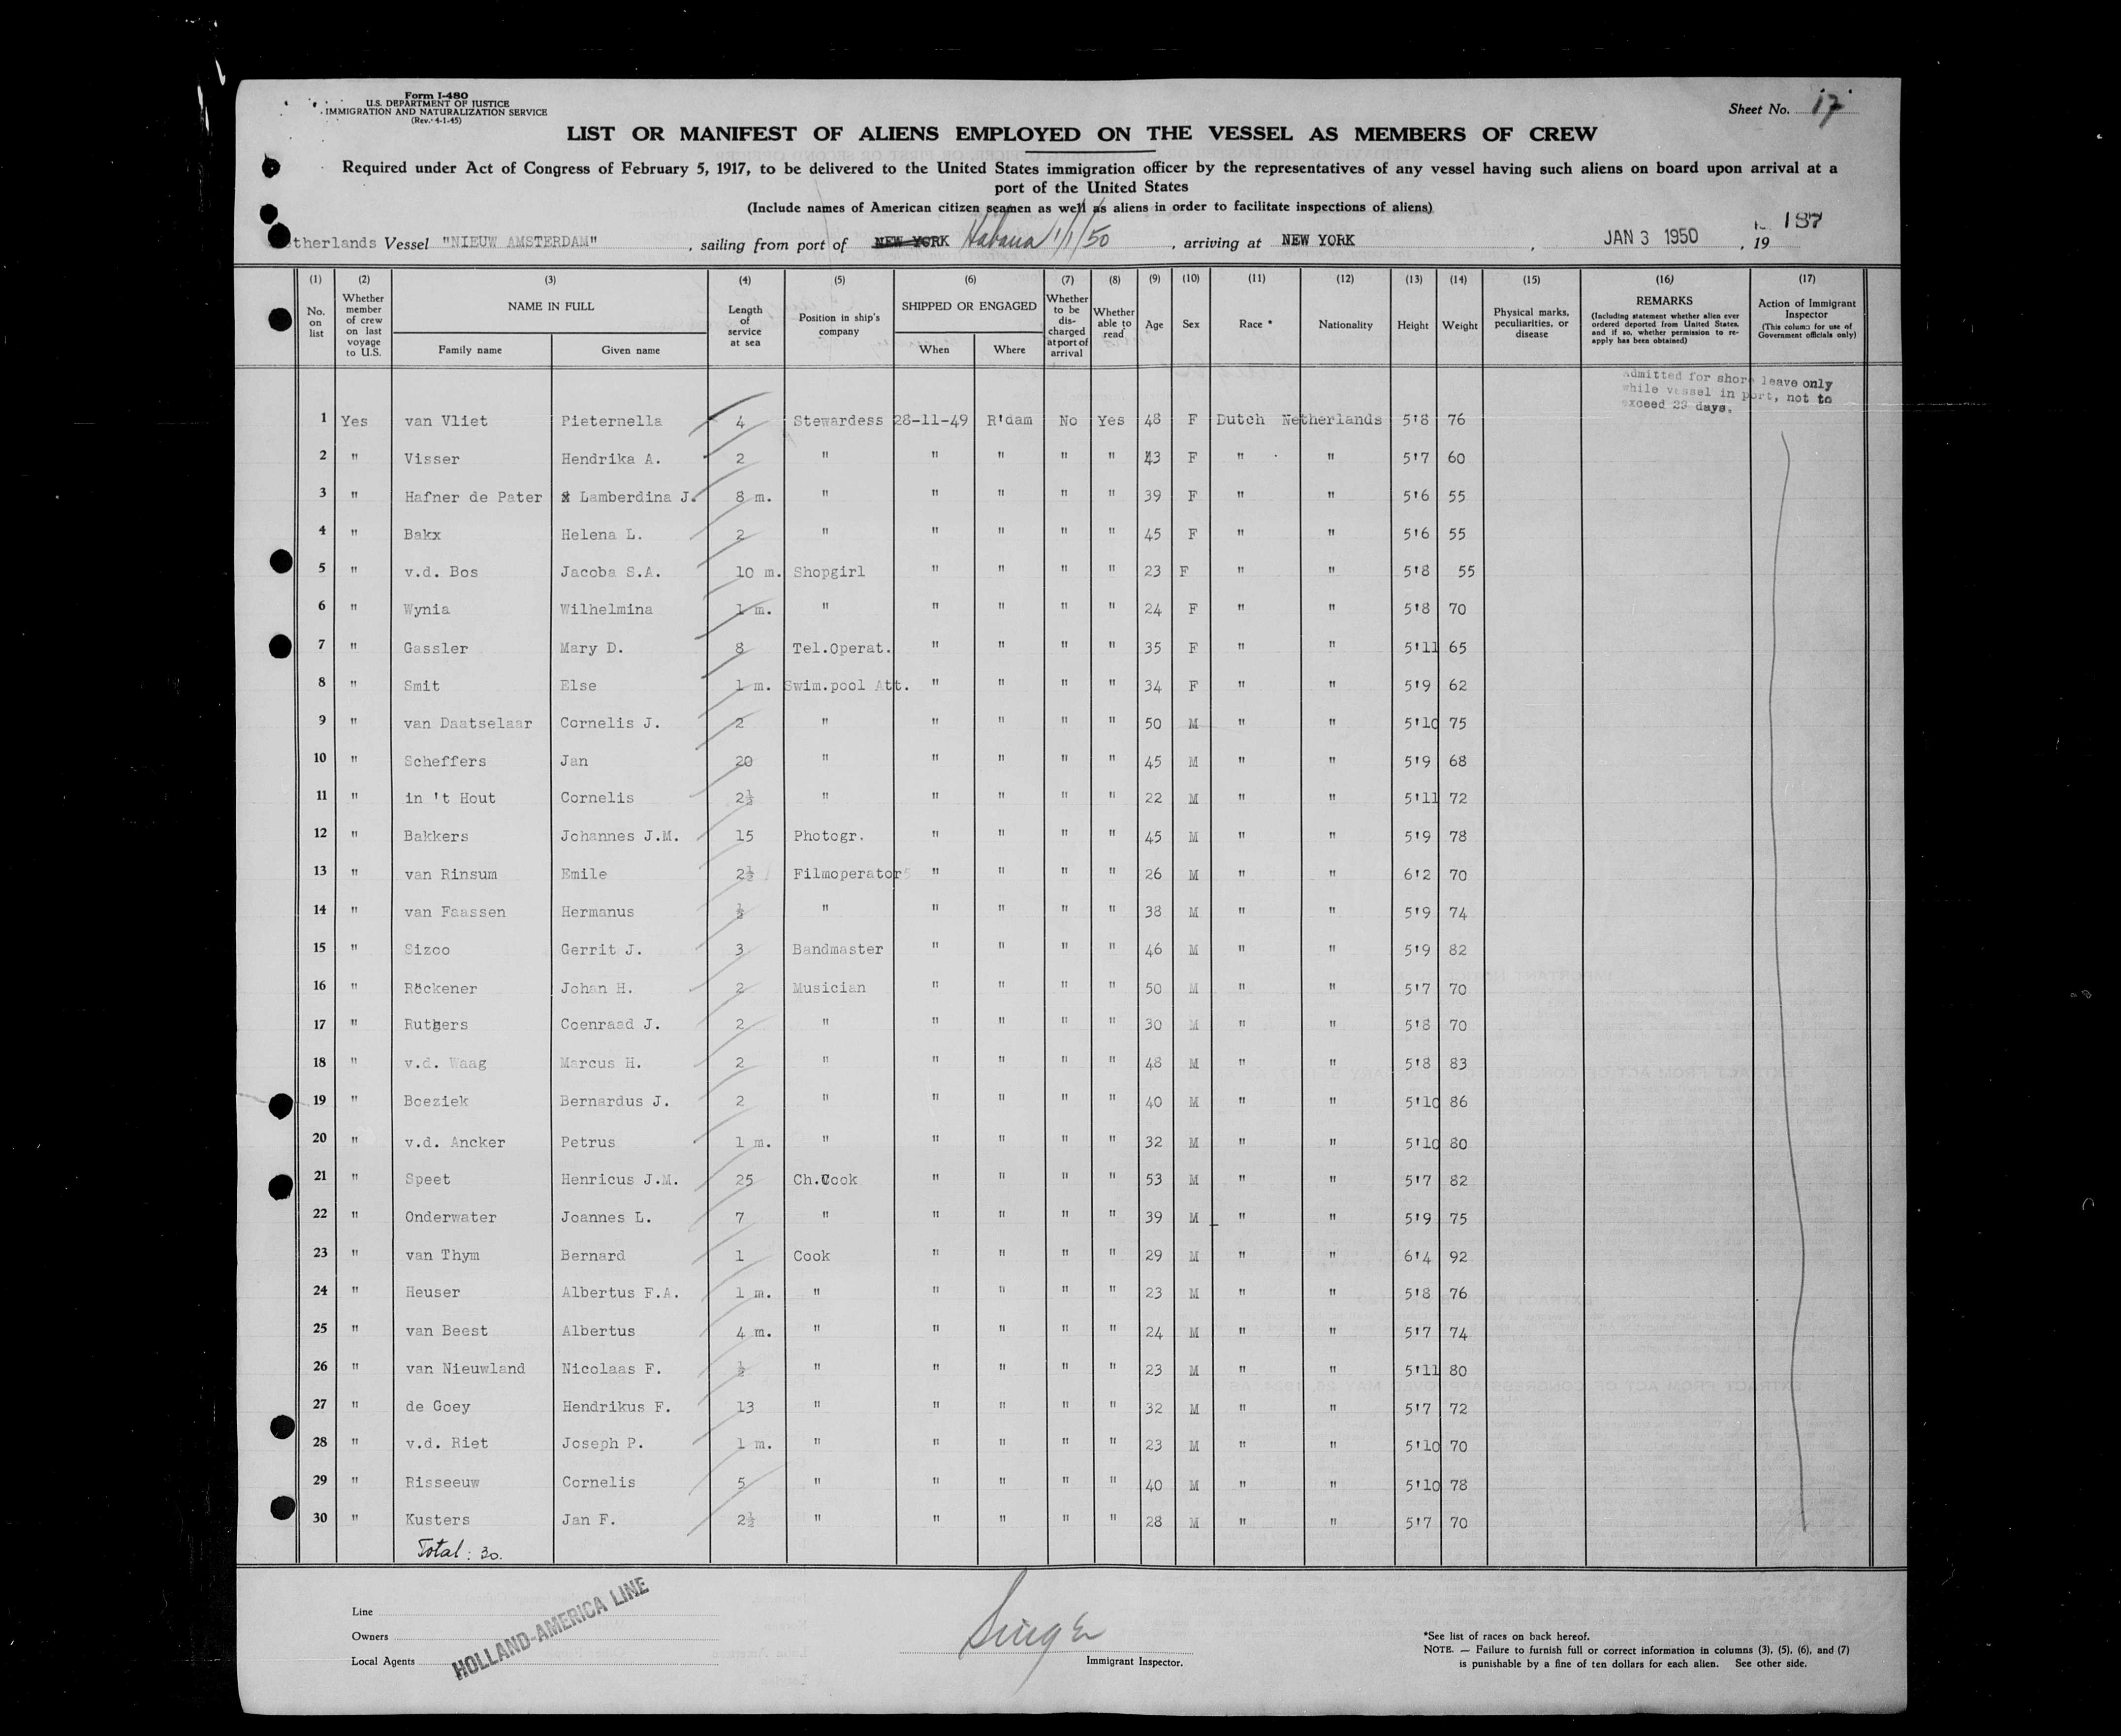 Form I-480
U.S. DEPARTMENT OF JUSTICE
IMMIGRATION AND NATURALIZATION SERVICE
(Rev. 4-1-45)
Sheet No. 17
LIST OR MANIFEST OF ALIENS EMPLOYED ON THE VESSEL AS MEMBERS OF CREW
Required under Act of Congress of February 5, 1917, to be delivered to the United States immigration officer by the representatives of any vessel having such aliens on board upon arrival at a
port of the United States
(Include names of American citizen seamen as well as aliens in order to facilitate inspections of aliens)
187
therlands Vessel "NIEUW AMSTERDAM", sailing from port of NEW YORK Habana 1/1/50, arriving at NEW YORK, JAN 3 1950, 19
(1) (2) (3) (4) (5) (6) (7) (8) (9) (10) (11) (12) (13) (14) (15) (16) (17)
No. on list
Whether member of crew on last voyage to U.S.
NAME IN FULL
Family name
Given name
Length of service at sea
Position in ship's company
SHIPPED OR ENGAGED
When
Where
Whether to be discharged at port of arrival
Whether able to read
Age
Sex
Race *
Nationality
Height
Weight
Physical marks, peculiarities, or disease
REMARKS
(Including statement whether alien ever ordered deported from United States, and if so, whether permission to re-apply has been obtained)
Action of Immigrant Inspector
(This column for use of Government officials only)
Admitted for shore leave only
while vessel in port, not to
exceed 29 days.
1 Yes van Vliet Pieternella 4 Stewardess 28-11-49 R'dam No Yes 48 F Dutch Netherlands 5'8 76
2 " Visser Hendrika A. 2 " " " " " 43 F " " 5'7 60
3 " Hafner de Pater Lamberdina J. 8 m. " " " " " 39 F " " 5'6 55
4 " Bakx Helena L. 2 " " " " " 45 F " " 5'6 55
5 " v.d. Bos Jacoba S.A. 10 m. Shopgirl " " " " 23 F " " 5'8 55
6 " Wynia Wilhelmina 1 m. " " " " " 24 F " " 5'8 70
7 " Gassler Mary D. 8 Tel.Operat. " " " " 35 F " " 5'11 65
8 " Smit Else 1 m. Swim.pool Att. " " " " 34 F " " 5'9 62
9 " van Daatselaar Cornelis J. 2 " " " " " 50 M " " 5'10 75
10 " Scheffers Jan 20 " " " " " 45 M " " 5'9 68
11 " in 't Hout Cornelis 2½ " " " " " 22 M " " 5'11 72
12 " Bakkers Johannes J.M. 15 Photogr. " " " " 45 M " " 5'9 78
13 " van Rinsum Emile 2½ Filmoperator " " " " 26 M " " 6'2 70
14 " van Faassen Hermanus ½ " " " " " 38 M " " 5'9 74
15 " Sizoo Gerrit J. 3 Bandmaster " " " " 46 M " " 5'9 82
16 " Röckener Johan H. 2 Musician " " " " 50 M " " 5'7 70
17 " Rutgers Coenraad J. 2 " " " " " 30 M " " 5'8 70
18 " v.d. Waag Marcus H. 2 " " " " " 48 M " " 5'8 83
19 " Boeziek Bernardus J. 2 " " " " " 40 M " " 5'10 86
20 " v.d. Ancker Petrus 1 m. " " " " " 32 M " " 5'10 80
21 " Speet Henricus J.M. 25 Ch.Cook " " " " 53 M " " 5'7 82
22 " Onderwater Joannes L. 7 " " " " " 39 M " " 5'9 75
23 " van Thym Bernard 1 Cook " " " " 29 M " " 6'4 92
24 " Heuser Albertus F.A. 1 m. " " " " " 23 M " " 5'8 76
25 " van Beest Albertus 4 m. " " " " " 24 M " " 5'7 74
26 " van Nieuwland Nicolaas F. ½ " " " " " 23 M " " 5'11 80
27 " de Goey Hendrikus F. 13 " " " " " 32 M " " 5'7 72
28 " v.d. Riet Joseph P. 1 m. " " " " " 23 M " " 5'10 70
29 " Risseeuw Cornelis 5 " " " " " 40 M " " 5'10 78
30 " Kusters Jan F. 2½ " " " " " 28 M " " 5'7 70
Total: 30.
Line
Owners
Local Agents
HOLLAND-AMERICA LINE
Singer
Immigrant Inspector.
*See list of races on back hereof.
NOTE. — Failure to furnish full or correct information in columns (3), (5), (6), and (7)
is punishable by a fine of ten dollars for each alien. See other side.